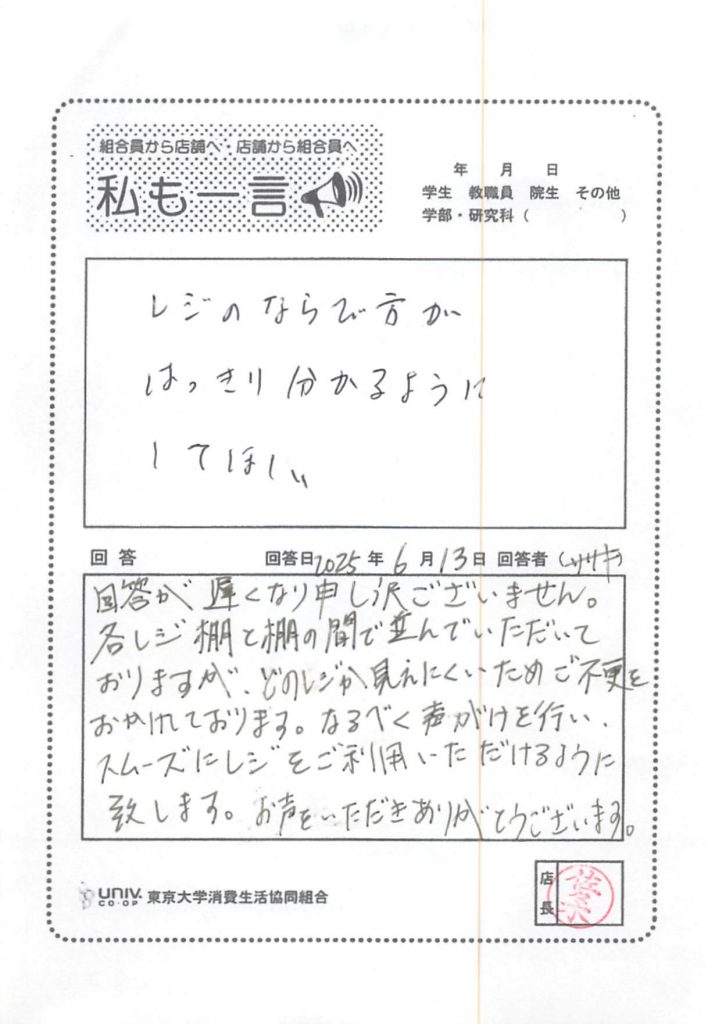 組合員から店舗へ・店舗から組合員へ
私も一言
年 月 日
学生 教職員 院生 その他
学部・研究科（ ）
レジのならび方が
はっきり分かるように
してほしい
回答 回答日2025年6月13日 回答者（ササキ）
回答が遅くなり申し訳ございません。
各レジ棚と棚の間で並んでいただいて
おりますが、どのレジか見えにくいためご不便を
おかけしております。なるべく声がけを行い、
スムーズにレジをご利用いただけるように
致します。お声をいただきありがとうございます。
UNIV.
CO-OP
東京大学消費生活協同組合
店長